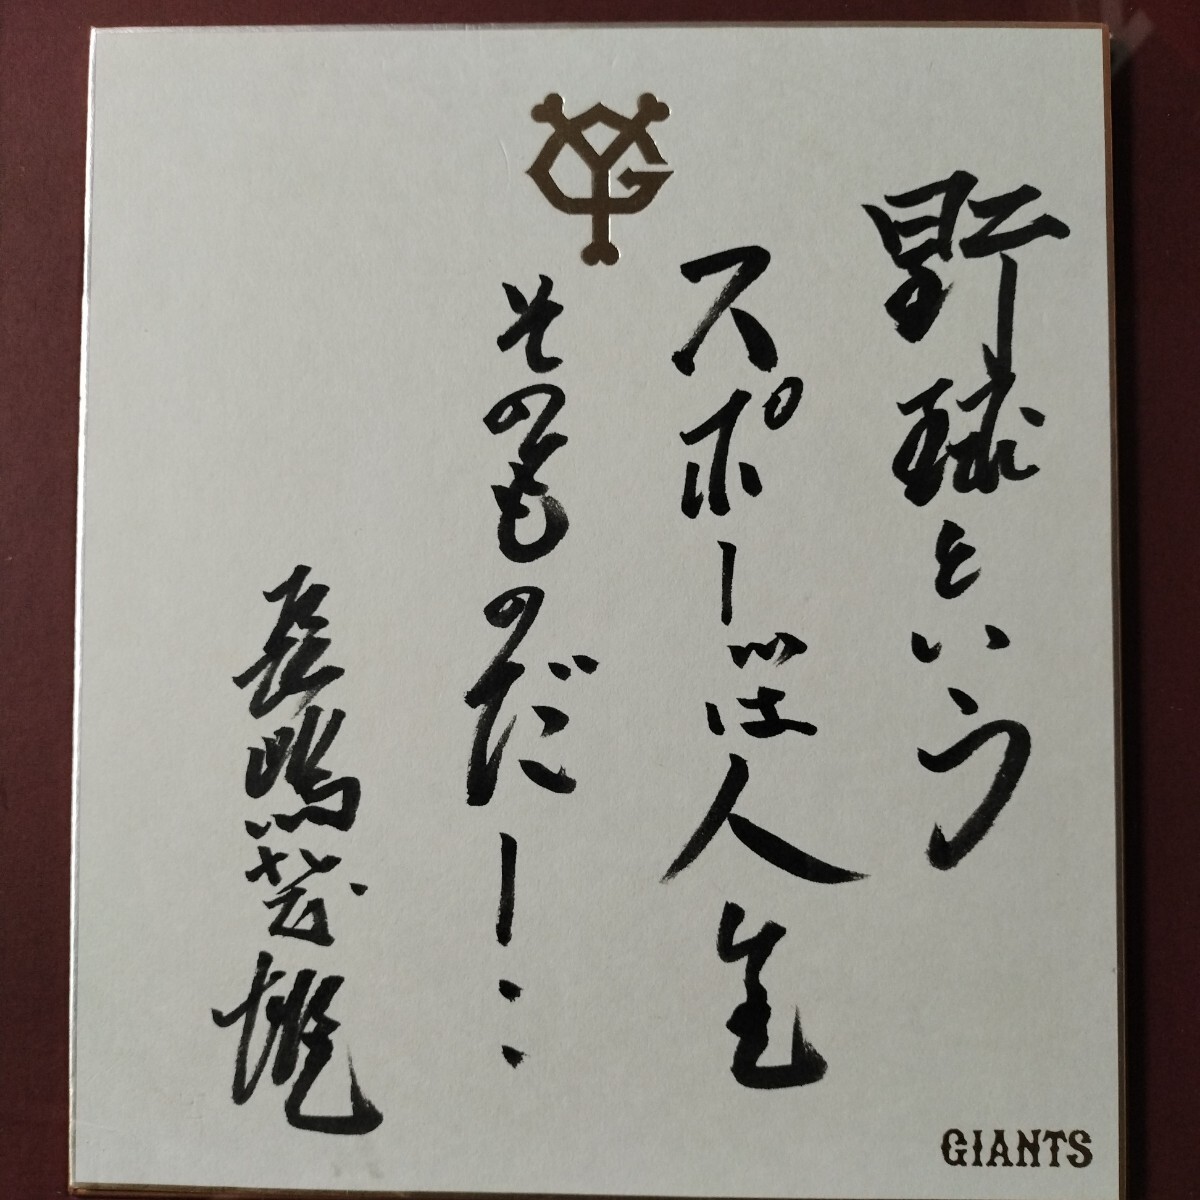 野球という
スポーツは人生
そのものだー:
長嶋茂雄
GIANTS